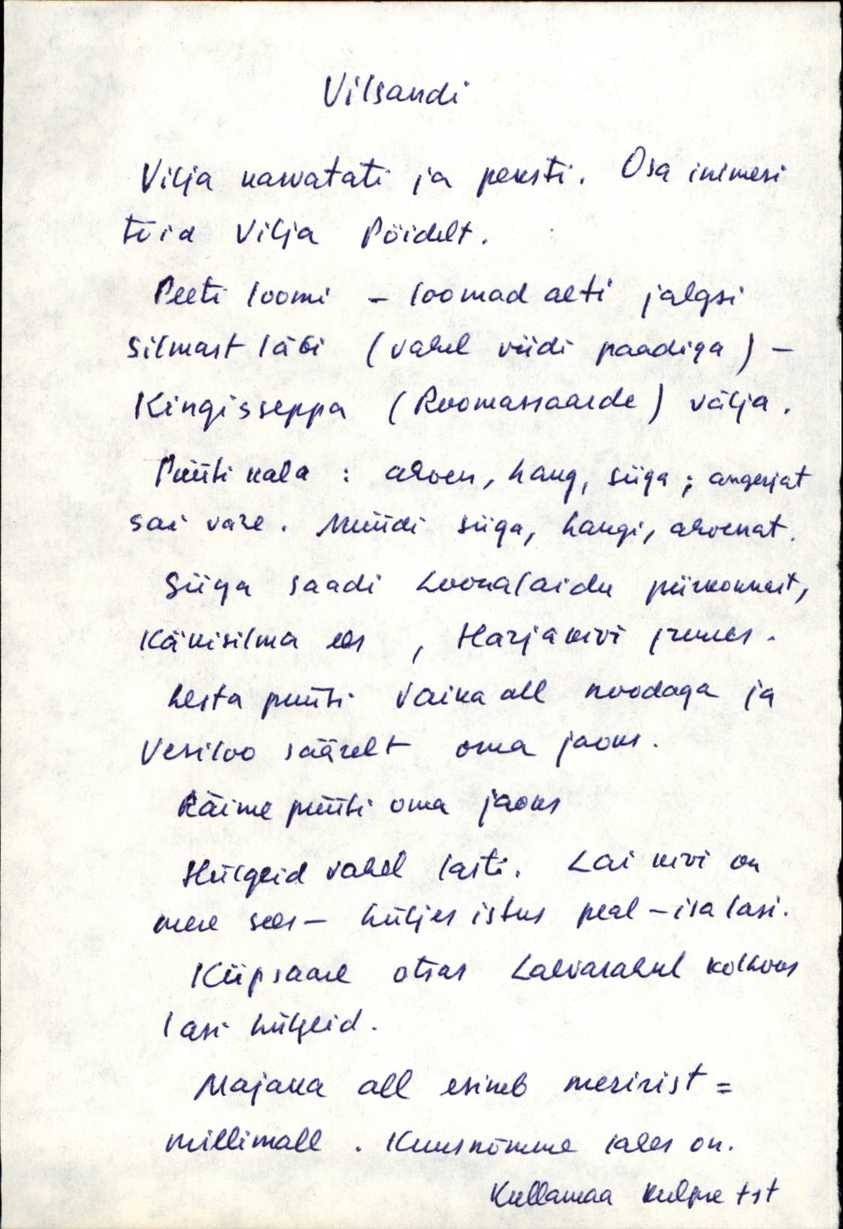 Vilsandi
Vilja kasvatati ja peksti. Osa inimesi
tõid vilja Pöidelt.
Peeti loomi - loomad aeti jalgsi
silmast läbi (vahel viidi paadiga) -
Kingisseppa (Roomassaarde) välja.
Püüti kala : ahven, haug, siiga; angerjat
sai vähe. Müüdi siiga, haugi, ahvenat.
Siiga saadi Loonalaidu piirkonnast,
Käkisilma ees , Harjakivi juures.
Lesta püüti Vaika all noodaga ja
Vesiloo säärelt oma jaoks.
Räime püüti oma jaoks
Hülgeid vahel lasti. Lai kivi on
mere sees - hüljes istus peal - isa lasi.
Kiipsaare otsas Laevarahul kolhoos
lasi hülgeid.
Majaka all esineb meririst =
millimall . Kuusnõmme lahes on.
Kullamaa